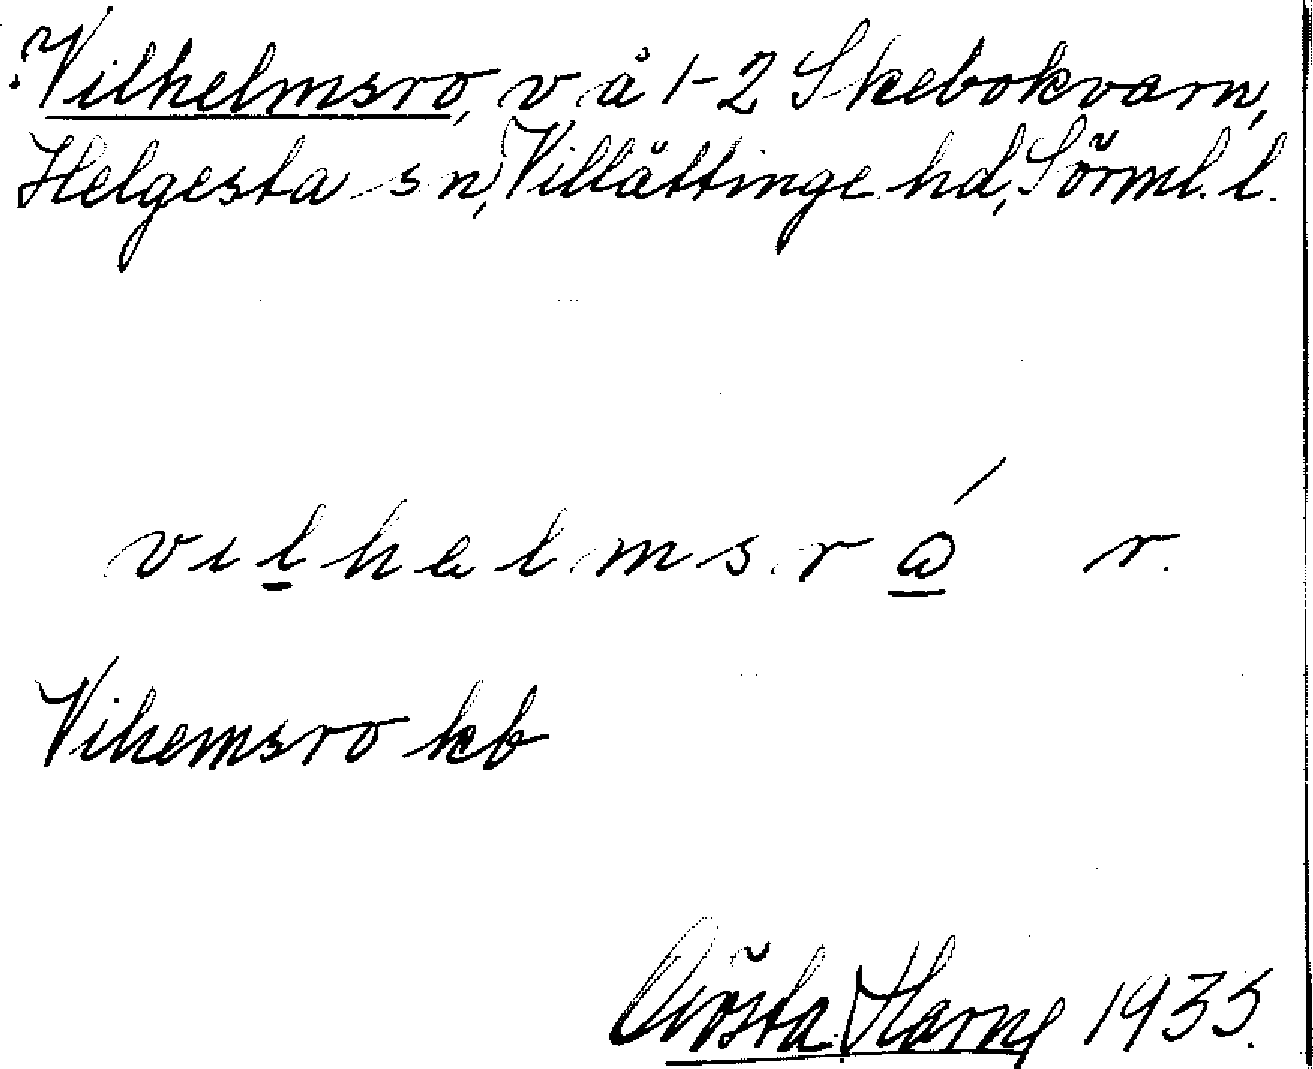 Vilhelmsro, v. å 1-2 Skebokvarn,
Helgesta sn, Villåttinge hd, Sörml. l.
vilhelmsró r.
Vihemsro kb
Gösta Harne 1935.